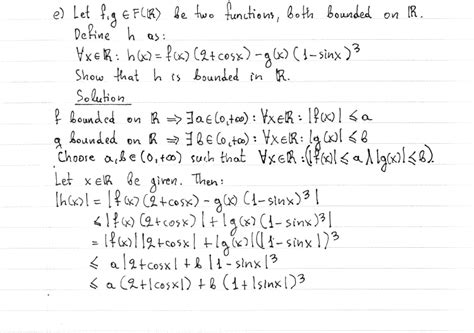 e) Let f,g ∈ F(ℝ) be two functions, both bounded on ℝ.
Define h as:
∀x∈ℝ: h(x) = f(x)(2+cosx) - g(x)(1-sinx)³
Show that h is bounded in ℝ.
Solution
f bounded on ℝ ⇒ ∃a∈(0,+∞): ∀x∈ℝ: |f(x)| ≤ a
g bounded on ℝ ⇒ ∃b∈(0,+∞): ∀x∈ℝ: |g(x)| ≤ b
Choose a,b∈(0,+∞) such that ∀x∈ℝ: (|f(x)| ≤ a ∧ |g(x)| ≤ b).
Let x∈ℝ be given. Then:
|h(x)| = |f(x)(2+cosx) - g(x)(1-sinx)³|
≤ |f(x)(2+cosx)| + |g(x)(1-sinx)³|
= |f(x)||2+cosx| + |g(x)|(|1-sinx|)³
≤ a|2+cosx| + b|1-sinx|³
≤ a(2+|cosx|) + b(1+|sinx|)³